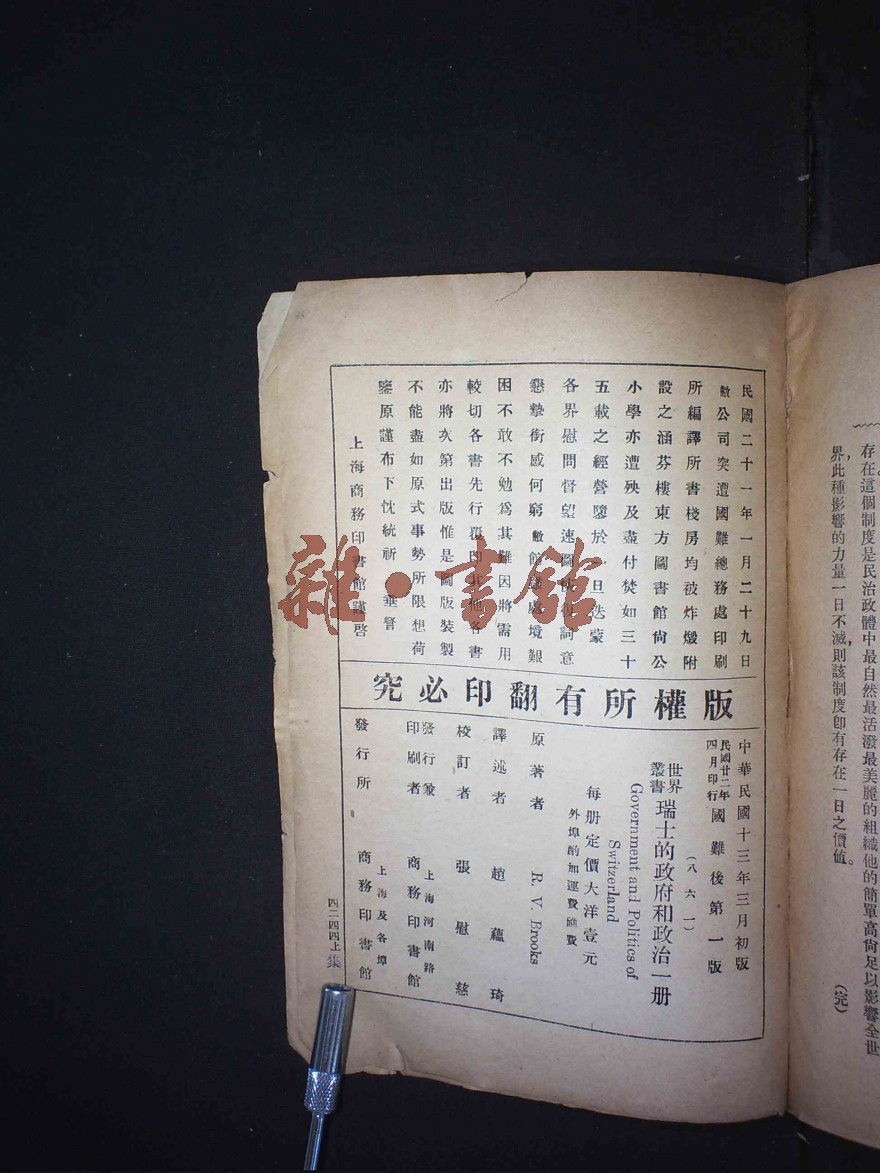 存在。這個制度是民治政體中最自然最活潑最美麗的組織他的簡單高尙足以影響全世
界此種影響的力量一日不滅則該制度卽有存在一日之價値。
(完)
民國二十一年一月二十九日
敝公司突遭國難總務處印刷
所編譯所書棧房均被炸燬附
設之涵芬樓東方圖書館尙公
小學亦遭殃及盡付焚如三十
五載之經營隳於一旦迭蒙
各界慰問督望速圖恢復詞意
懇摯銜感何窮敝館雖處境艱
困不敢不勉爲其難因將需用
較切各書先行覆印其他各書
亦將次第出版惟是圖版裝製
不能盡如原式事勢所限想荷
鑒原謹布下忱統祈 垂詧
上海商務印書館謹啓
版權所有翻印必究
中華民國十三年三月初版
民國廿二年四月印行國難後第一版
(八六一)
世界叢書 瑞士的政府和政治一册
Government and Politics of
Switzerland
每册定價大洋壹元
外埠酌加運費匯費
原著者 R. V. Brooks
譯述者 趙蘊琦
校訂者 張慰慈
發行兼印刷者 上海河南路 商務印書館
發行所 上海及各埠 商務印書館
四二四四上
集
雜·書館